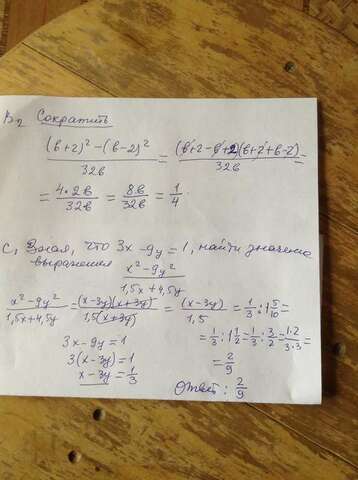 В₂ Сократить
(в+2)² − (в−2)² / 32в = (в+2−в+2)(в+2+в−2) / 32в =
= 4·2в / 32в = 8в / 32в = 1/4 .
С₁ Зная, что 3x−9y = 1, найти значение
выражения x² − 9y² / 1,5x + 4,5y
x² − 9y² / 1,5x + 4,5y = (x−3y)(x+3y) / 1,5(x+3y) = (x−3y) / 1,5 = 1/3 : 1 5/10 =
3x − 9y = 1
= 1/3 : 1 1/2 = 1/3 : 3/2 = 1·2 / 3·3 =
3(x − 3y) = 1
= 2/9
x − 3y = 1/3
Ответ: 2/9